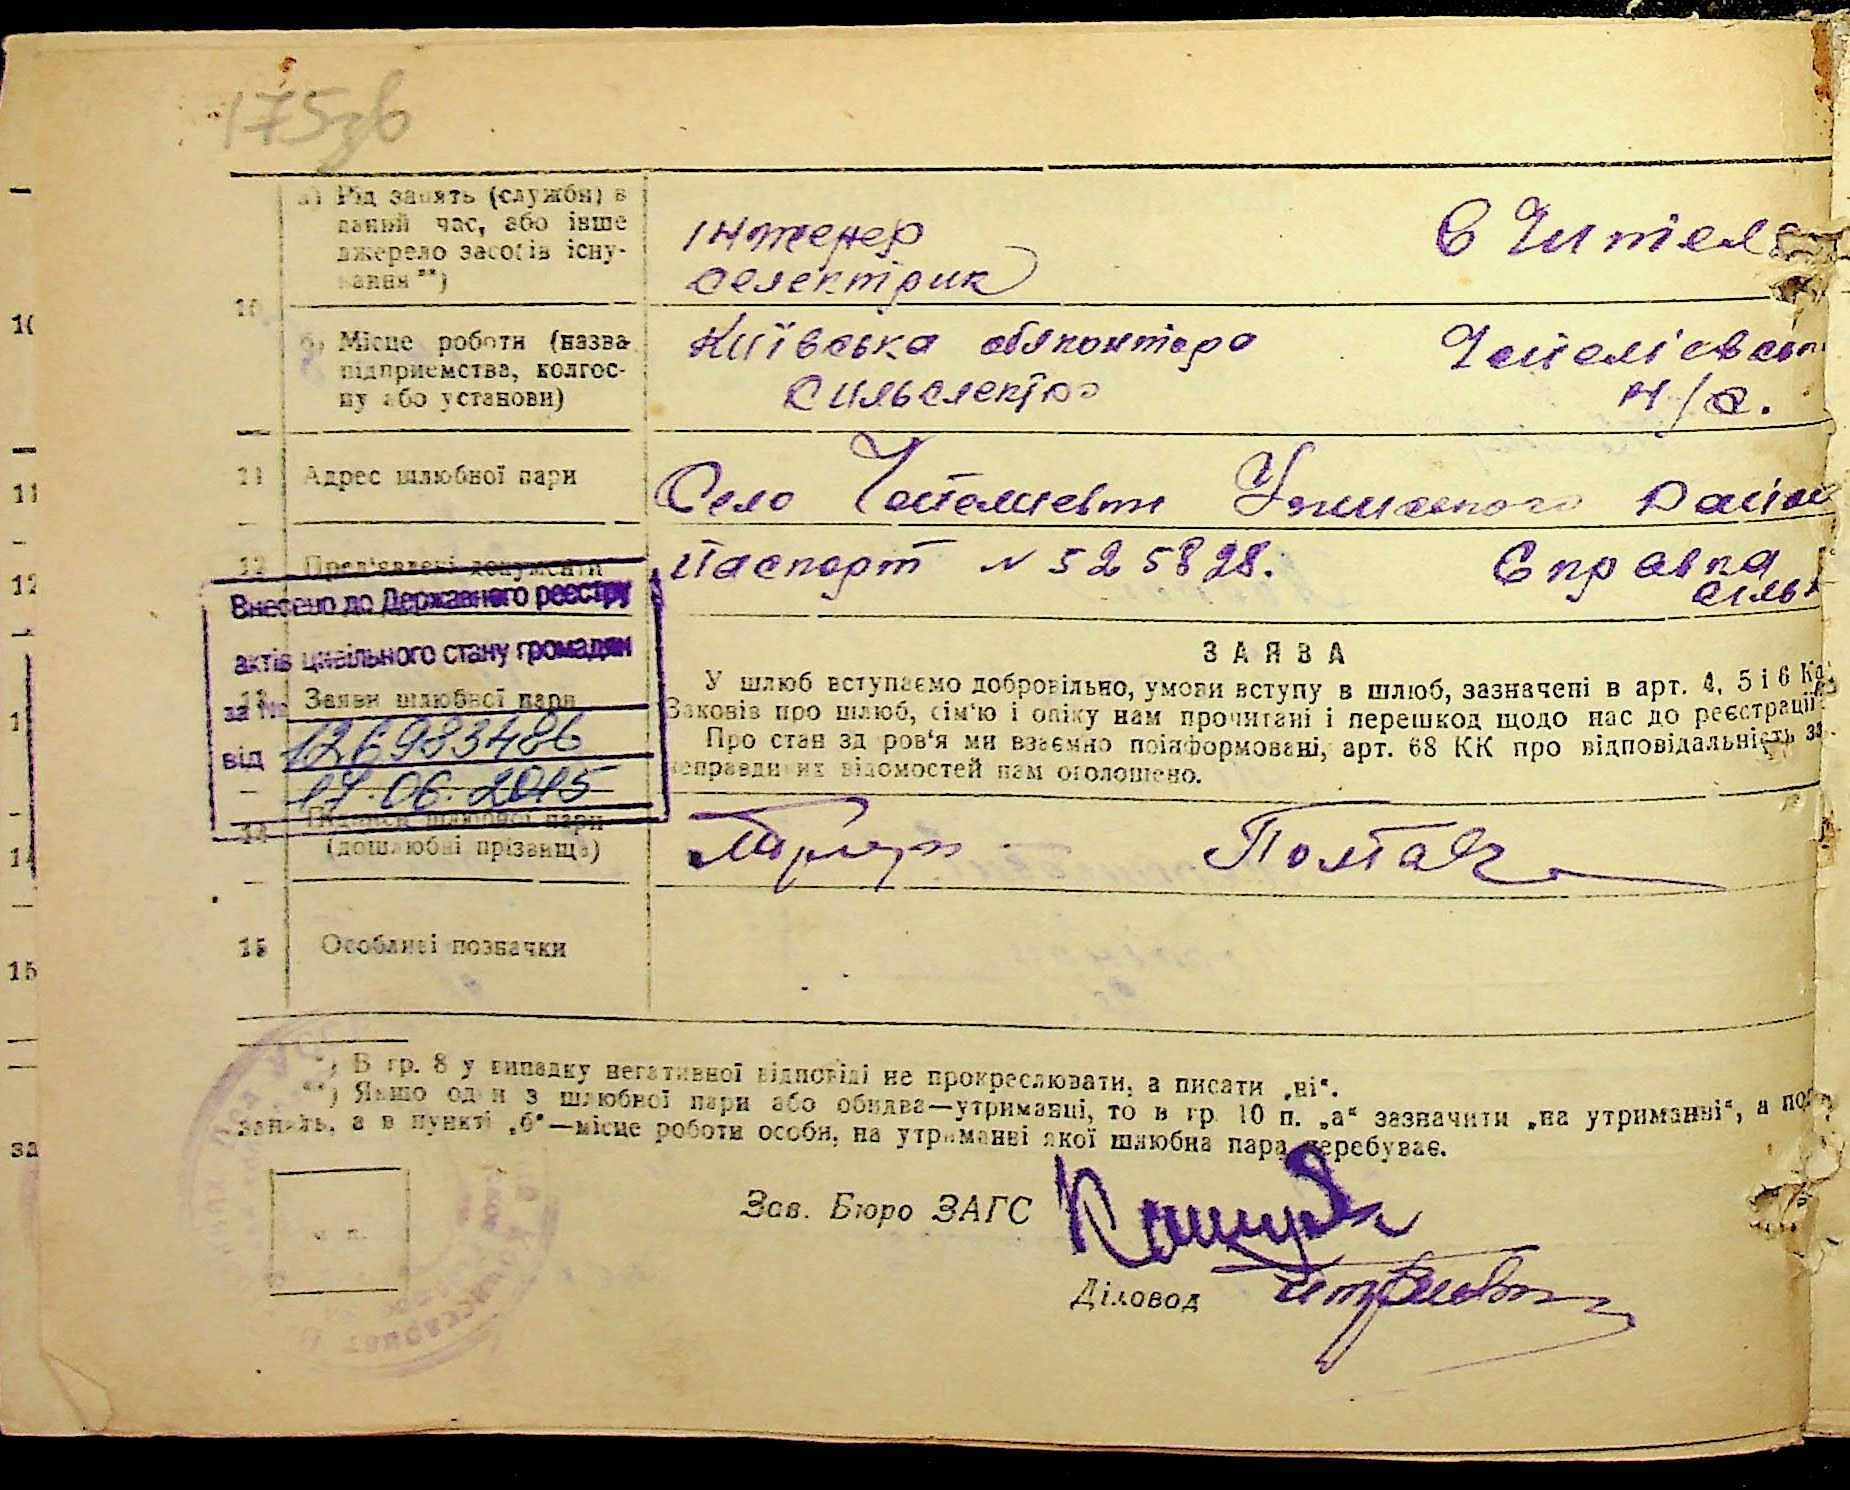 175зв
10 а) Рід занять (служби) в
даний час, або інше
джерело засобів існу-
вання **)
інженер
електрик
вчителя
б) Місце роботи (назва
підприємства, колгос-
пу або установи)
Київська облконтора
Сільелектро
н/с.
11 Адрес шлюбної пари
Село
12 Пред'явлені документи
Паспорт № 525828.
Справка
сіль
Внесено до Державного реєстру
актів цивільного стану громадян
за №
126983486
від
17.06.2015
13 Заяви шлюбної пари
ЗАЯВА
У шлюб вступаємо добровільно, умови вступу в шлюб, зазначені в арт. 4, 5 і 6
Законів про шлюб, сім'ю і опіку нам прочитані і перешкод щодо нас до реєстрації
Про стан здоров'я ми взаємно поінформовані, арт. 68 КК про відповідальність за
неправдивих відомостей нам оголошено.
14 Підписи шлюбної пари
(дошлюбні прізвища)
15 Особливі позначки
*) В гр. 8 у випадку негативної відповіді не прокреслювати, а писати „ні“.
**) Якщо один з шлюбної пари або обидва—утриманці, то в гр. 10 п. „а“ зазначити „на утриманні“, а
занять, а в пункті „б“—місце роботи особи, на утриманні якої шлюбна пара перебуває.
м. п.
Зав. Бюро ЗАГС
Діловод
10
11
12
1
14
15
за